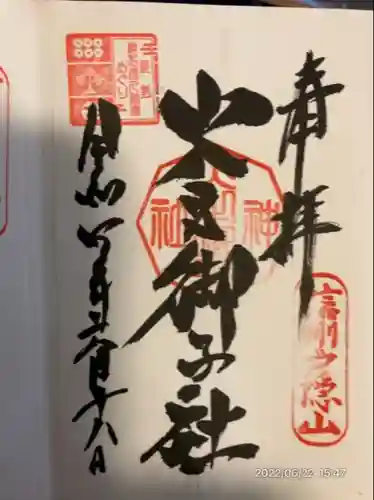 奉拝
信州戸隠山
火之御子社
令和四年六月十八日
2022/06/22 15:47